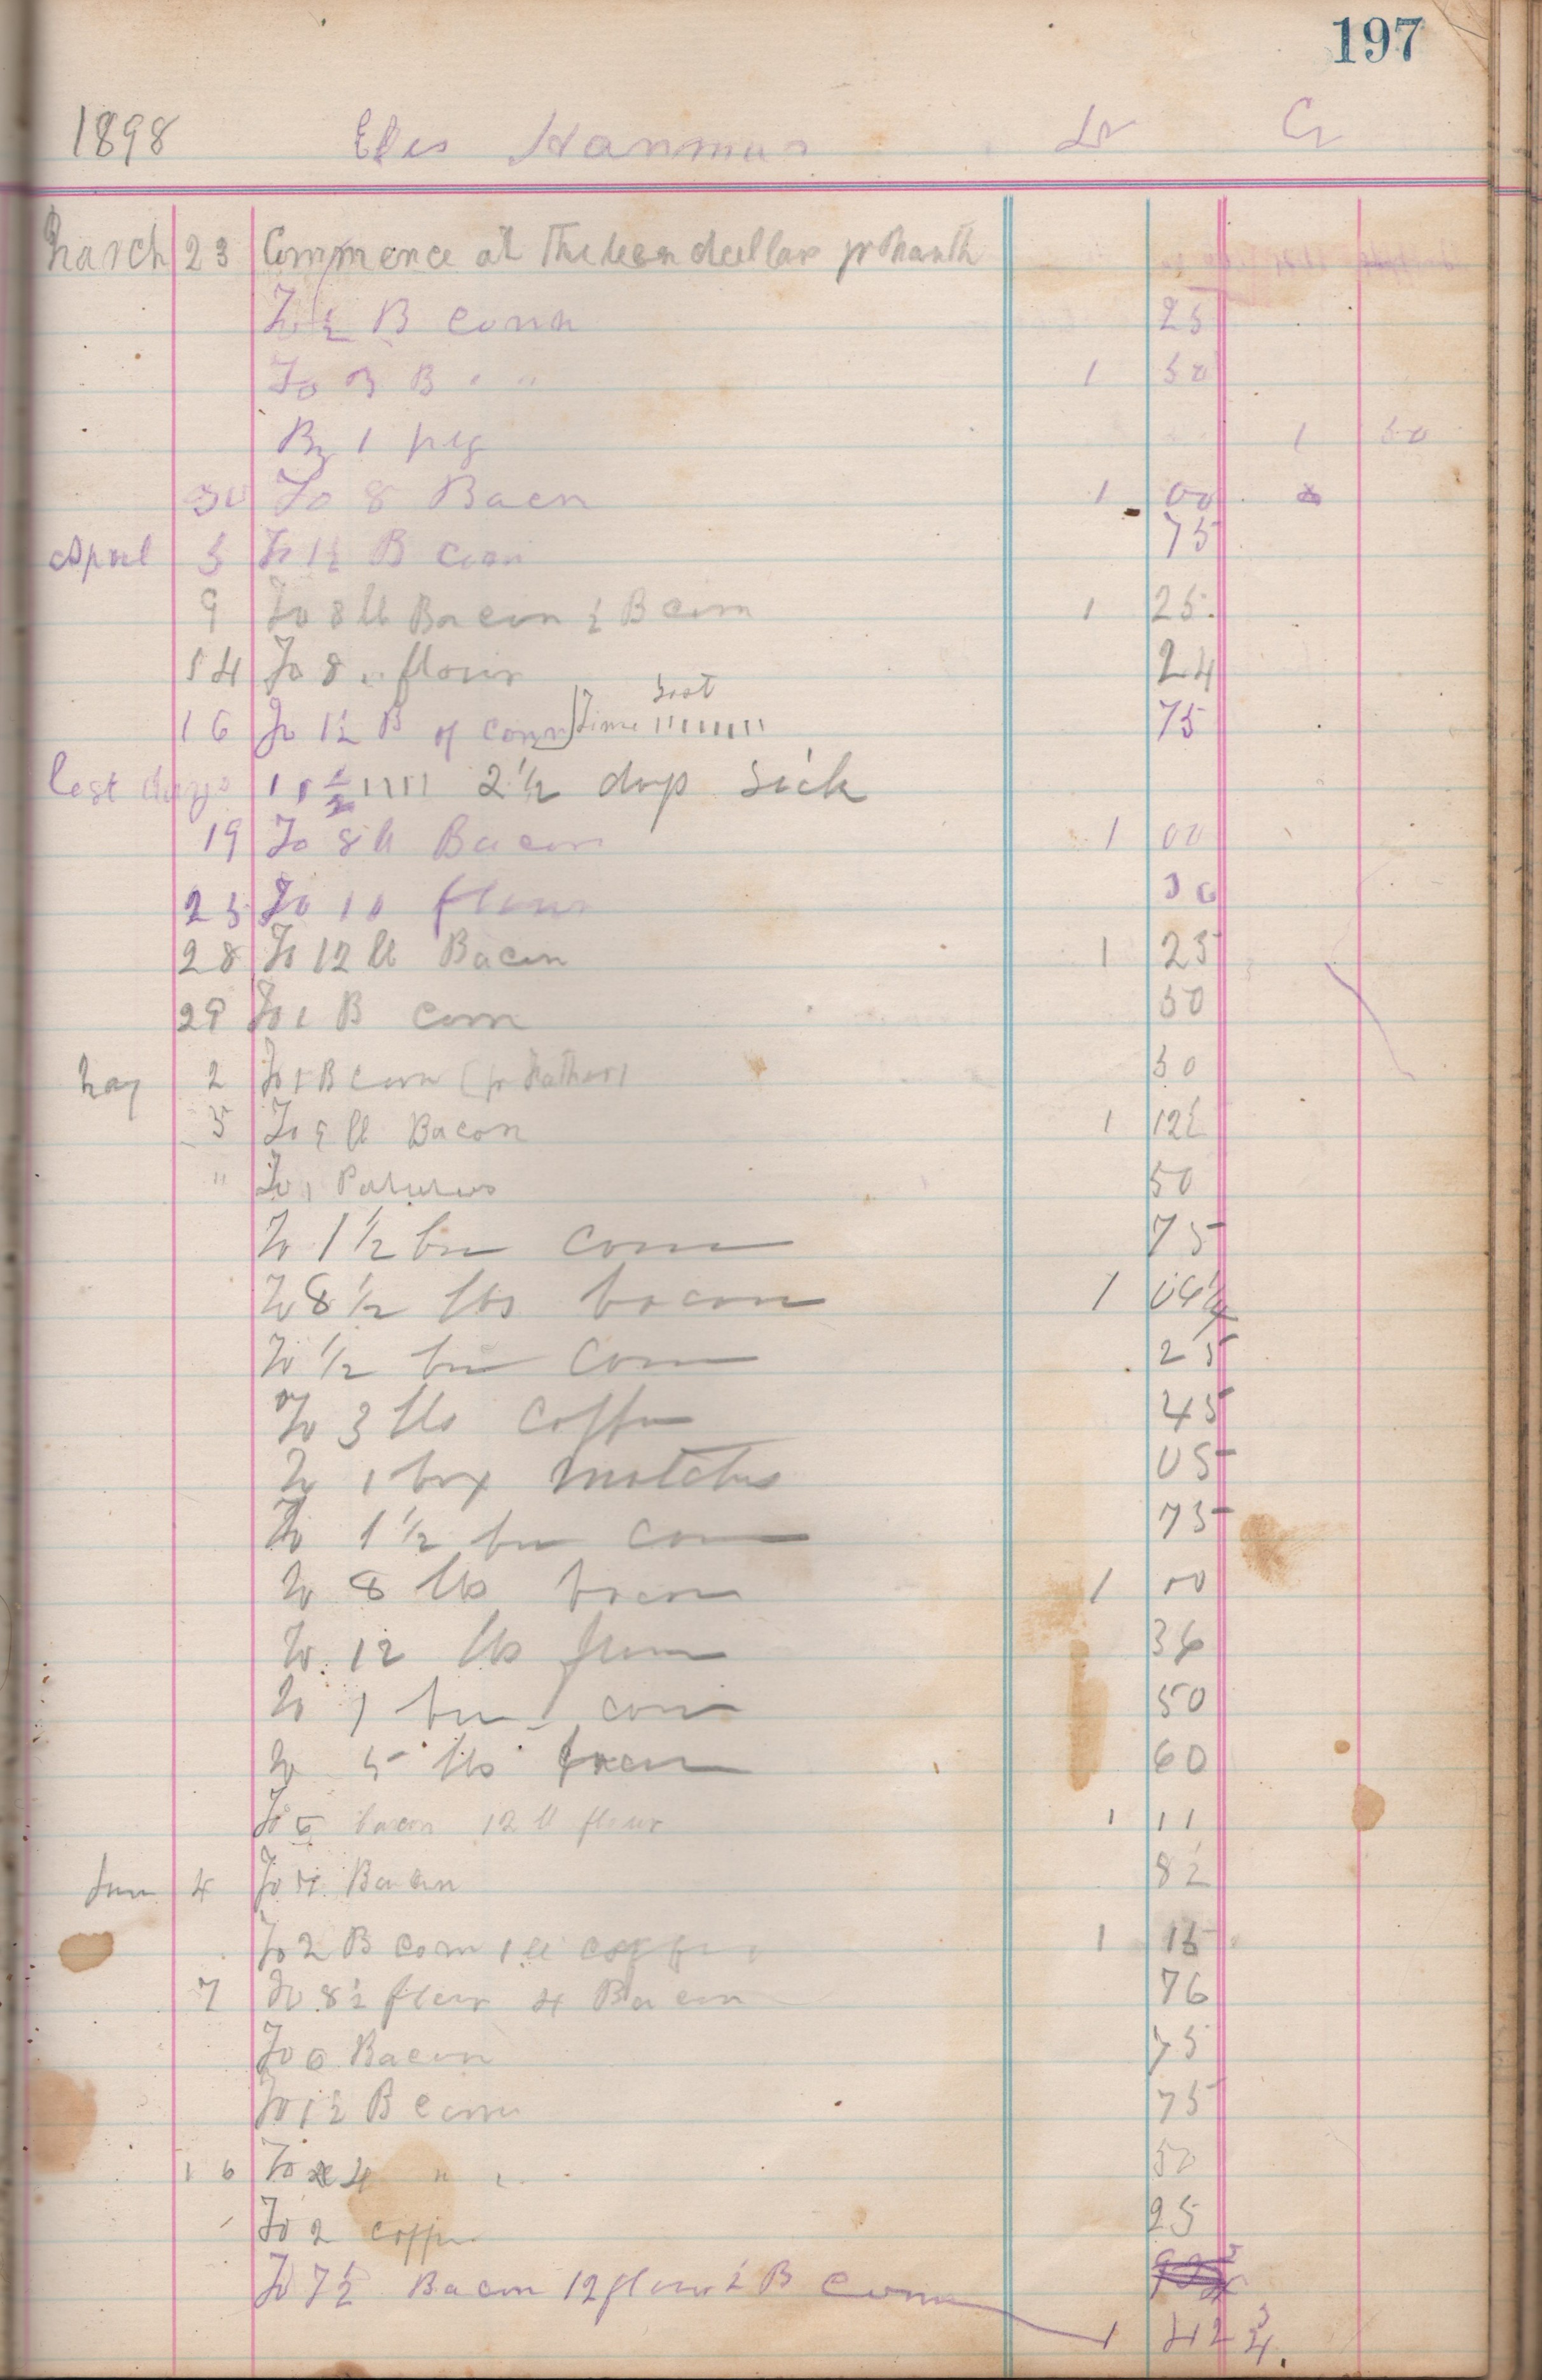 197
1898 Eles Hammer Dr Cr
March 23 Commence at thirteen dollar pr Month
To ½ B corn 25
To 3 B " " 1 50
By 1 pig 1 50
30 To 8 Bacn 1 00
April 5 To 1½ B corn 75
9 To 8 lb Bacon ½ B corn 1 25
14 To 8 " flour 24
16 To 1½ B of corn Time lost 75
lost days 2½ days sick
19 To 8 lb Bacon 1 00
25 To 10 flour 30
28 To 12 lb Bacon 1 25
29 To 1 B corn 50
May 2 To 1 B corn (pr Father) 50
5 To 9 lb Bacon 1 12½
" To 1 50
To 1½ bu corn 75
To 8½ lbs bacon 1 06¼
To ½ bu corn 25
To 3 lbs coffee 45
To 1 box matches 05
To 1½ bu corn 75
To 8 lbs bacon 1 00
To 12 lbs flour 36
To 1 bu corn 50
To 5 lbs bacon 60
To 6 bacon 12 lb flour 1 11
June 4 To 7 Bacon 82
To 2 B corn 1 lb coffee 1 15
7 To 8½ flour 4 Bacon 76
To 6 Bacon 75
To 1½ B corn 75
16 To 4 " " 50
To 2 coffee 25
To 7½ Bacon 12 flour ½ B corn
1 42 ¾